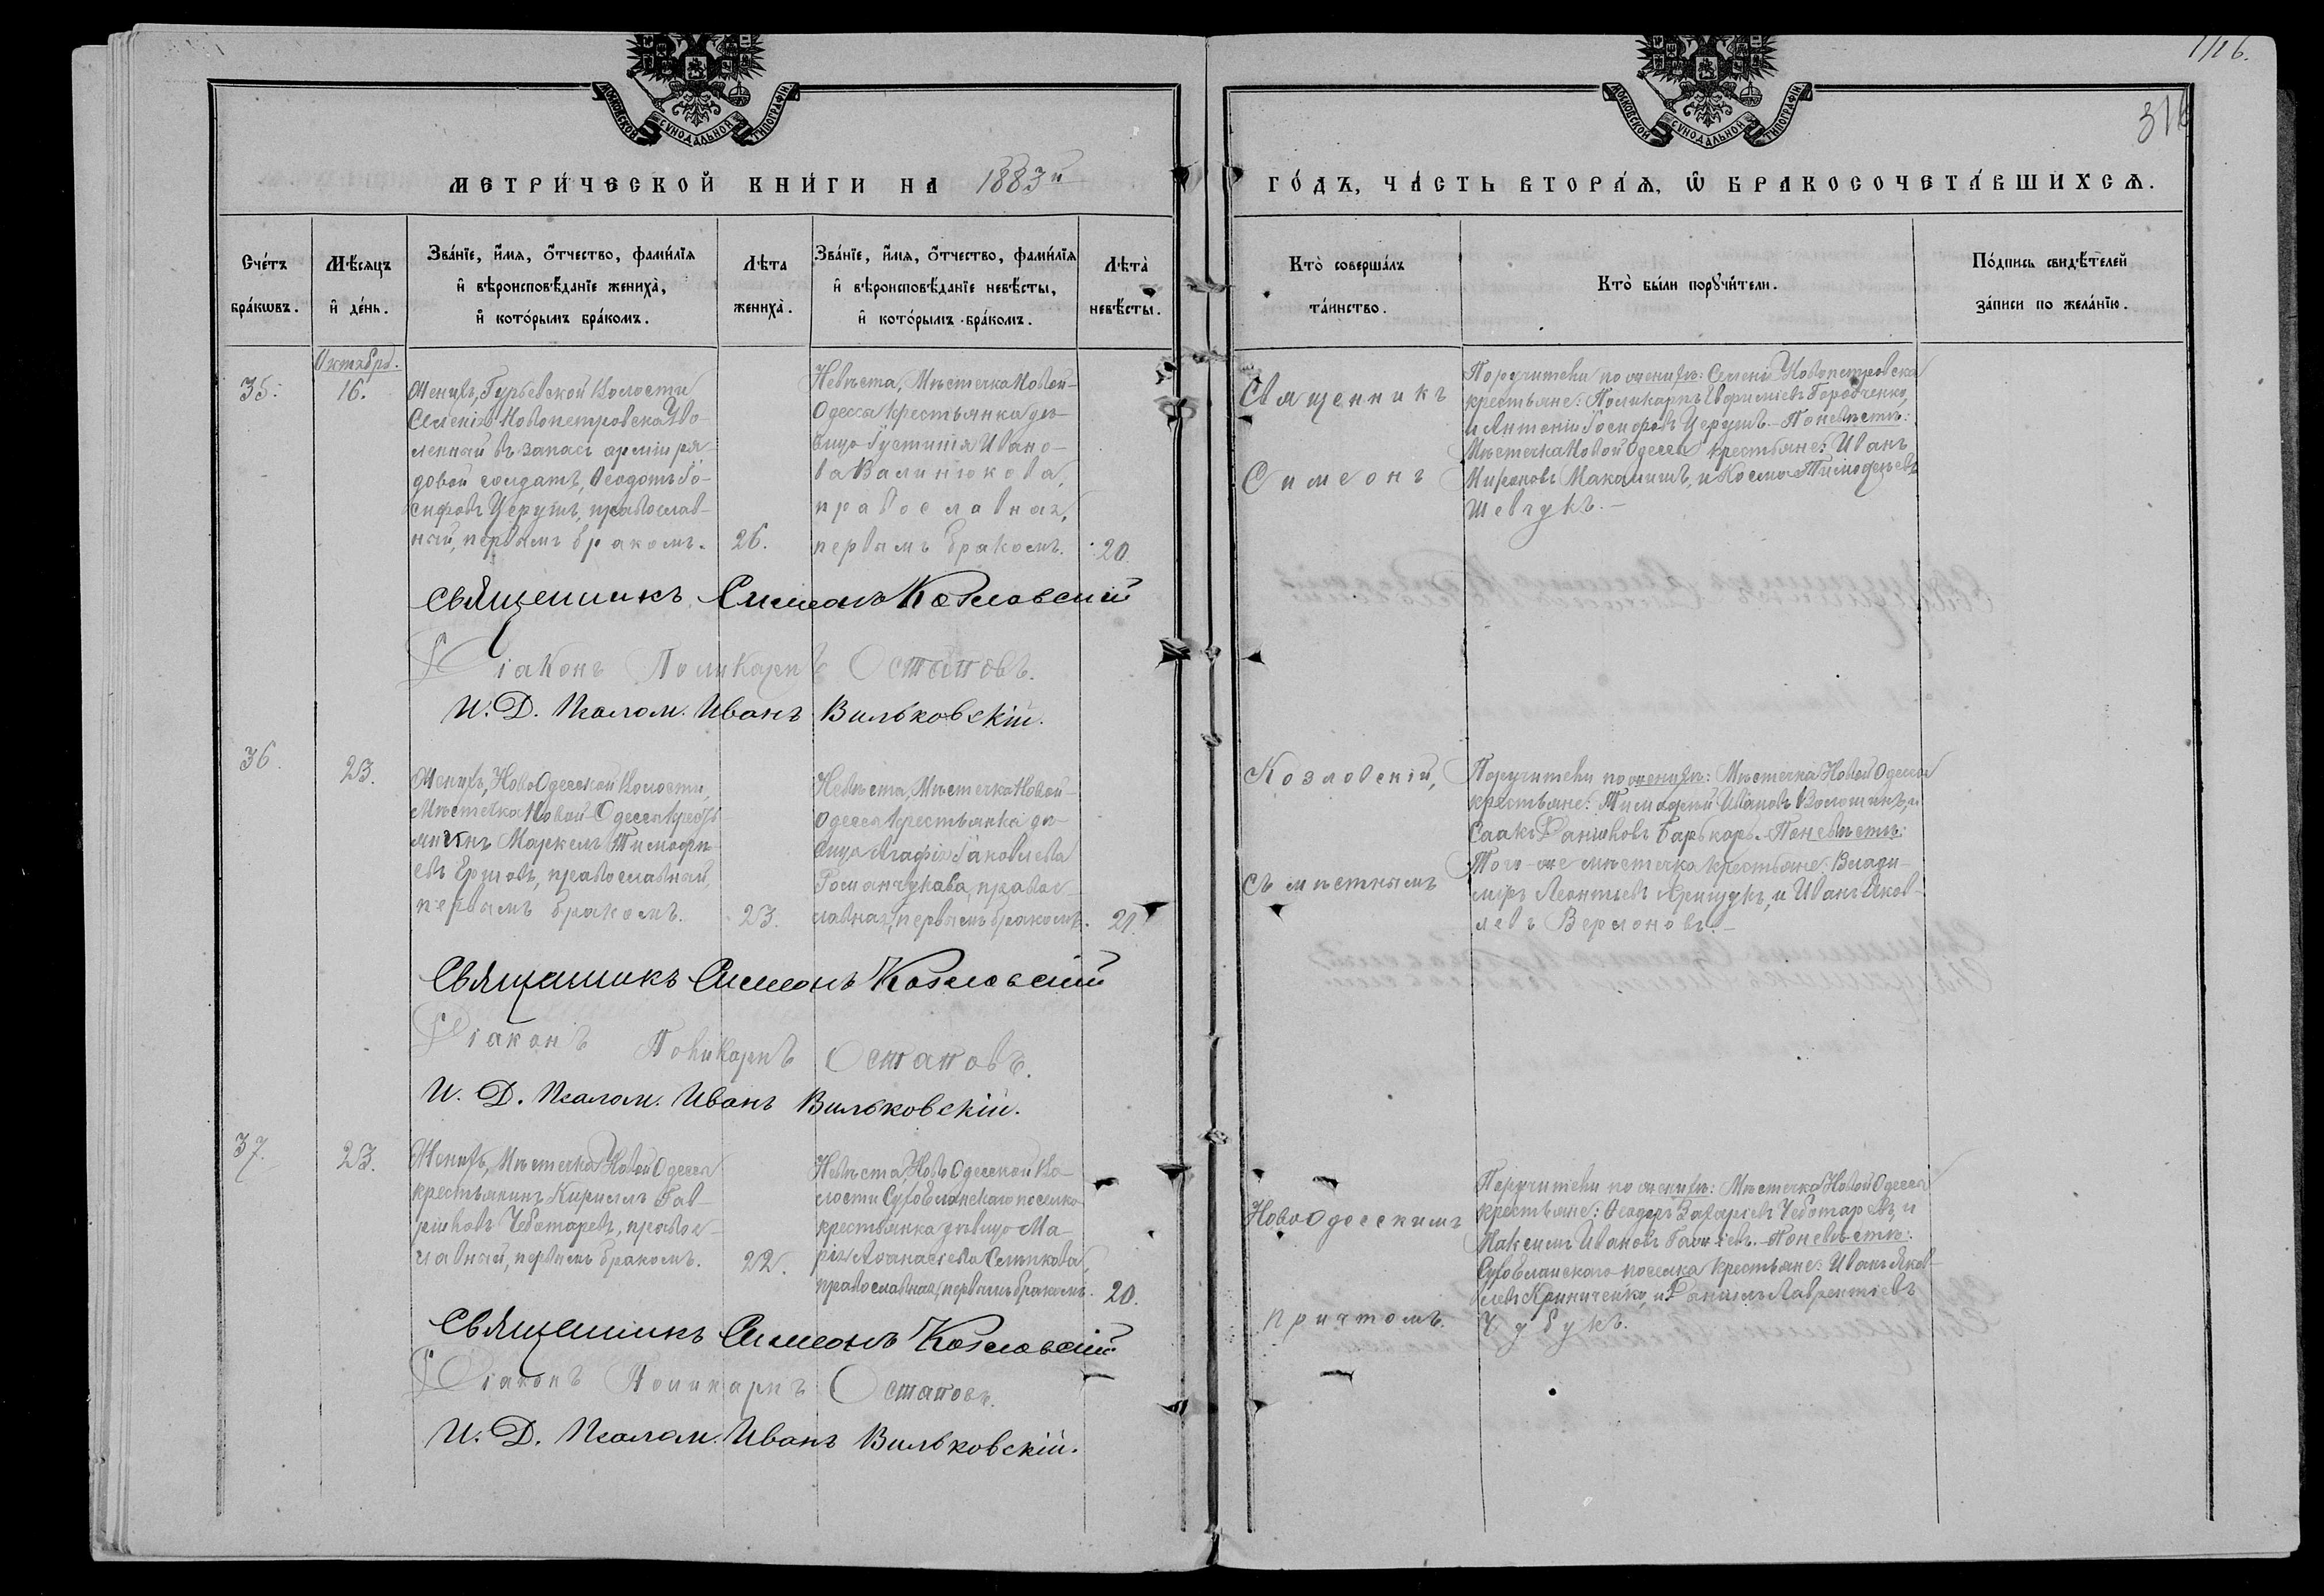 1126.
316
МОСКОВСКОЙ СѴНОДАЛЬНОЙ ТИПОГРАФІИ
МОСКОВСКОЙ СѴНОДАЛЬНОЙ ТИПОГРАФІИ
МЕТРИ́ЧЕСКОЙ КНИ́ГИ НА 1883й
ГО́ДЪ, ЧА́СТЬ ВТОРА́Я, Ѡ БРАКОСОЧЕТА́ВШИХСЯ.
Сче́тъ
бра́кѡвъ.
Мѣ́сяцъ
и҆ де́нь.
Зва́нїе, и҆́мя, ѻ҆́тчество, фами́лїя
и҆ вѣроисповѣ́данїе жениха̀,
и҆ кото́рымъ бра́комъ.
Лѣ́та
жениха̀.
Зва́нїе, и҆́мя, ѻ҆́тчество, фами́лїя
и҆ вѣроисповѣ́данїе невѣ́сты,
и҆ кото́рымъ бра́комъ.
Лѣта̀
невѣ́сты.
Кто̀ соверша́лъ
та́инство.
Кто̀ бы́ли порꙋчи́тели.
По́дпись свидѣ́телей
за́писи по жела́нїю.
Октябрь.
35.
16.
Женихъ, Гурьевской Волости
Селенія Новопетровска Уво-
ленный въ запасъ арміи ря-
довой солдатъ, Ѳеодотъ Іо-
сифовъ Церушъ, православ-
ный, первымъ бракомъ.
26.
Невѣста, Мѣстечка Новой-
Одесса крестьянка дѣ-
вица Іустинія Ивано-
ва Валинюкова,
православная,
первымъ бракомъ.
20.
Священникъ
Симеонъ
Поручители по женихѣ: Селенія Новопетровска
крестьяне: Поликарпъ Евфиміевъ Городченко,
и Антоній Іосифовъ Церушъ. По невѣстѣ:
Мѣстечка Новой Одесса крестьяне: Иванъ
Мироновъ Макамишъ, и Косма Тимоѳеевъ
Шевчукъ.
Священникъ Симеонъ Козловскій
Діаконъ Поликарпъ Остаповъ.
И. Д. Псалом. Иванъ Вильковскій.
36.
23.
Женихъ, НовоОдесской Волости,
Мѣстечка Новой-Одесса Кресть-
янинъ Маркелъ Тимофе-
евъ Ершовъ, православный,
первымъ бракомъ.
23.
Невѣста, Мѣстечка Новой-
Одесса крестьянка дѣ-
вица Агафія Іаковлева
Романчукова, право-
славная, первымъ бракомъ.
21.
Козловскій,
съ мѣстнымъ
Поручители по женихѣ: Мѣстечка Новой Одесса
крестьяне: Тимофей Ивановъ Волошинъ, и
Саакъ Даниловъ Барькарь. По невѣстѣ:
Того-же мѣстечка крестьяне: Влади-
міръ Леонтьевъ Ярищукъ, и Иванъ Яков-
левъ Вермоновъ.
Священникъ Симеонъ Козловскій
Діаконъ Поликарпъ Остаповъ.
И. Д. Псалом. Иванъ Вильковскій.
37.
23.
Женихъ, Мѣстечка Новой Одесса
крестьянинъ Кириллъ Гав-
риловъ Чеботаревъ, право-
славный, первымъ бракомъ.
22.
Невѣста, НовоОдесской Во-
лости СухоЕланскаго поселка
крестьянка дѣвица Ма-
рія Аѳанасіева Семикова,
православная, первымъ бракомъ.
20.
НовоОдесскимъ
причтомъ.
Поручители по женихѣ: Мѣстечка Новой Одесса
крестьяне: Ѳеодоръ Захаріевъ Чеботаревъ, и
Максимъ Ивановъ По невѣстѣ:
СухоЕланскаго поселка крестьяне: Иванъ Яков-
левъ Криниченко, и Даніилъ Лаврентіевъ
Чубукъ.
Священникъ Симеонъ Козловскій
Діаконъ Поликарпъ Остаповъ.
И. Д. Псалом. Иванъ Вильковскій.